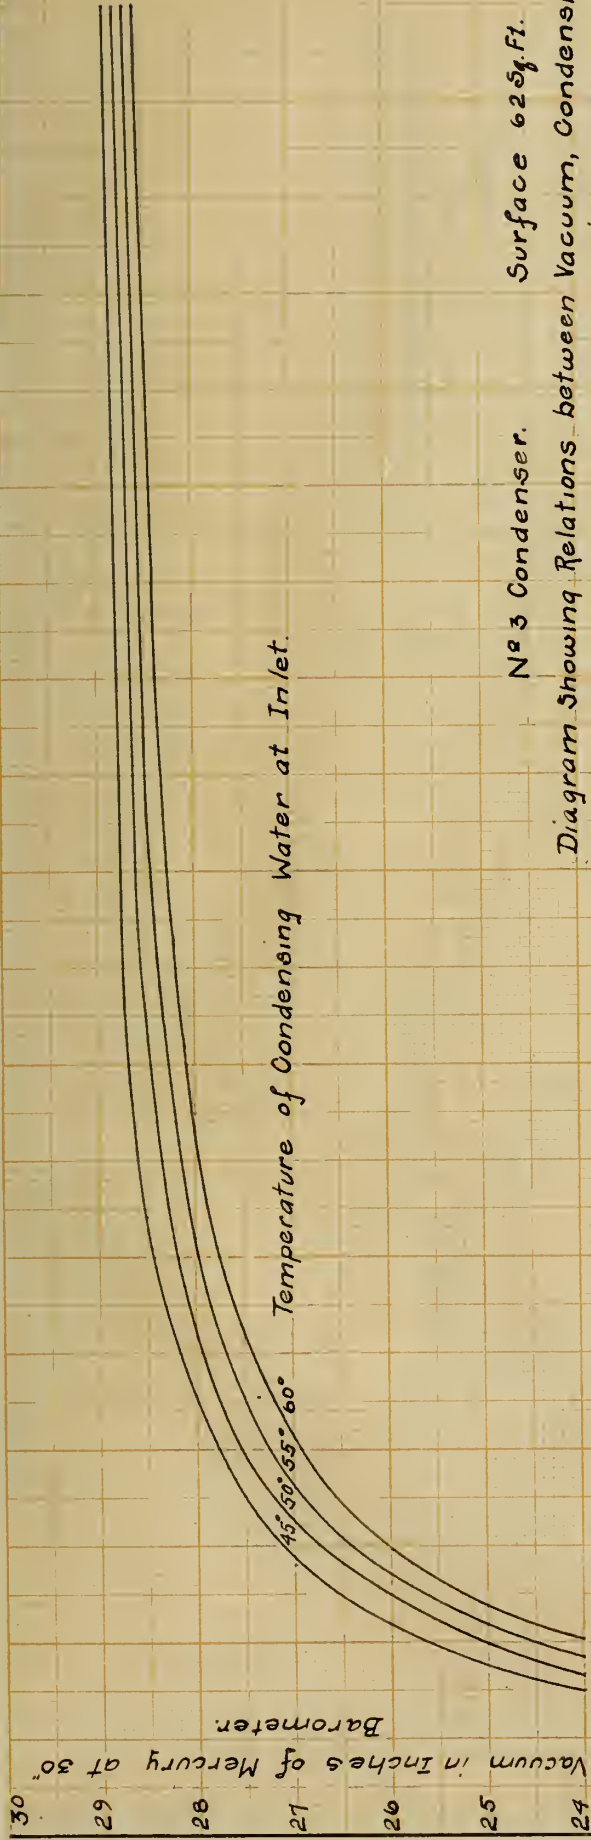 30
29
28
27
26
25
24
Vacuum in Inches of Mercury at 30"
Barometer.
45° 50° 55° 60° Temperature of Condensing Water at Inlet.
Nº 3 Condenser. Surface 62 Sq. Ft.
Diagram Showing Relations between Vacuum, Condensi